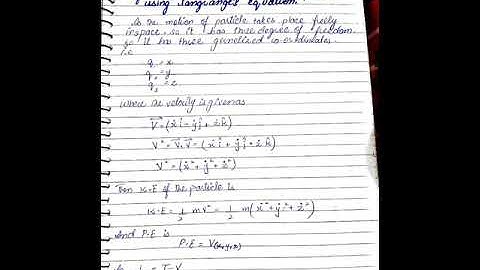 using Langrange's equation.
As the motion of particle takes place freely
in space, so it has three degree of freedom.
So it has three generelized co-ordinates
i.e
q₁ = x
q₂ = y
q₃ = z
where the velocity is given as
V⃗ = (ẋî + ẏĵ + żk̂)
V² = V⃗.V⃗ = (ẋî + ẏĵ + żk̂)
V² = (ẋ² + ẏ² + ż²)
Then K.E of the particle is
K.E = 1/2 mv² = 1/2 m(ẋ² + ẏ² + ż²)
And P.E is
P.E = V(x,y,z)
L = T-V